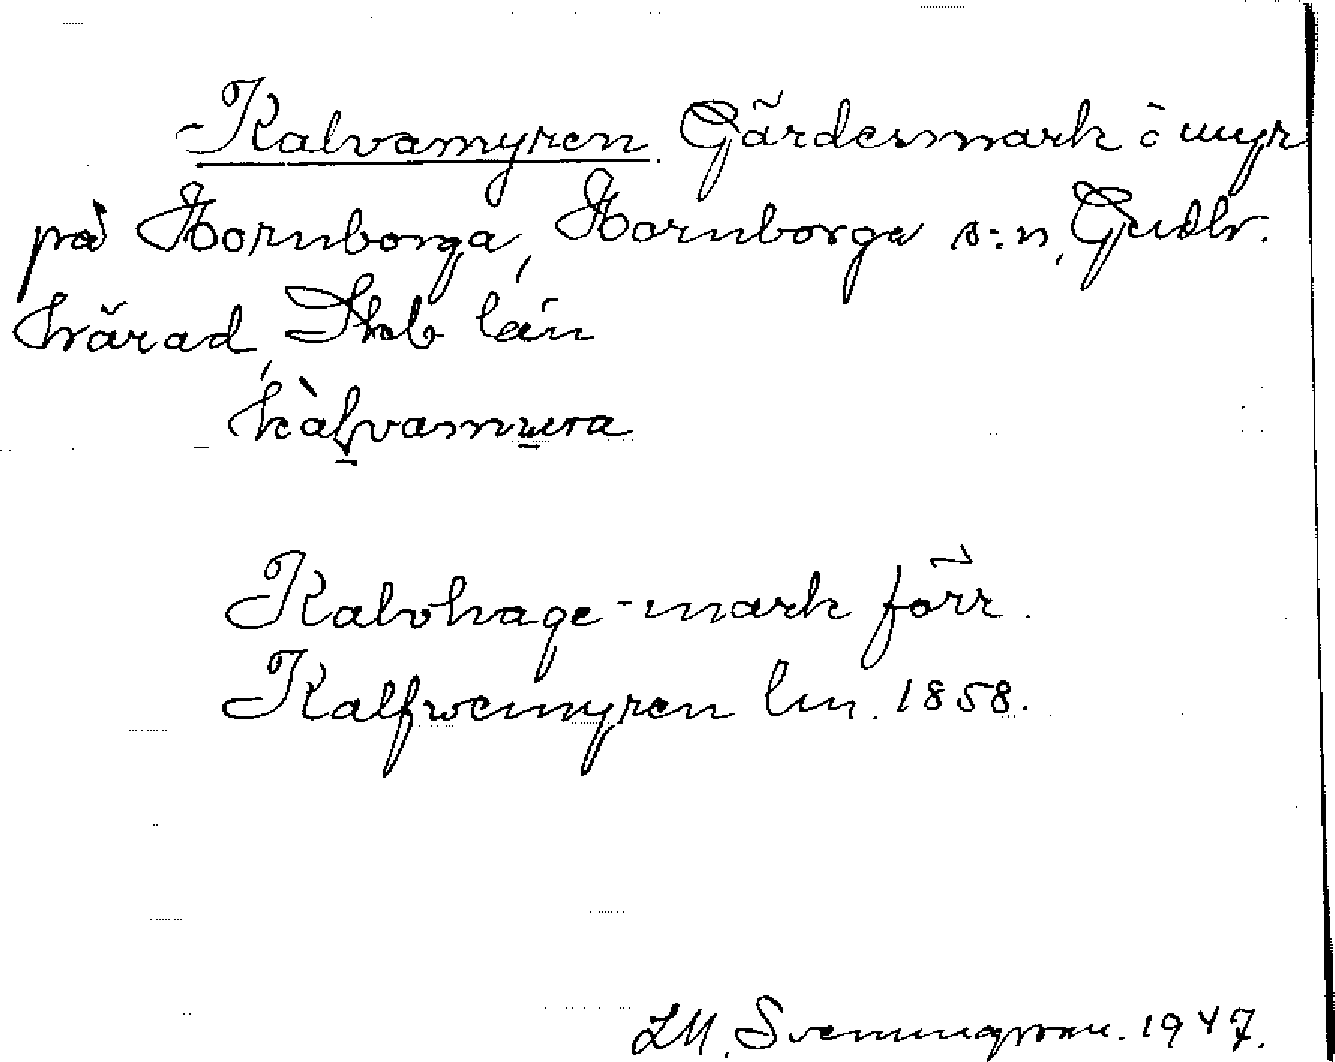 Kalvamyren. Gärdesmark å myr
på Hornborga, Hornborga s:n, Gudh.
härad, Skb län
kàlvamura
Kalvhage-mark förr.
Kalfwemyren lm. 1858.
LM. Svenungsson. 1947.